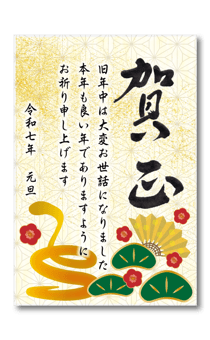 賀正
旧年中は大変お世話になりました
本年も良い年でありますように
お祈り申し上げます
令和七年 元旦